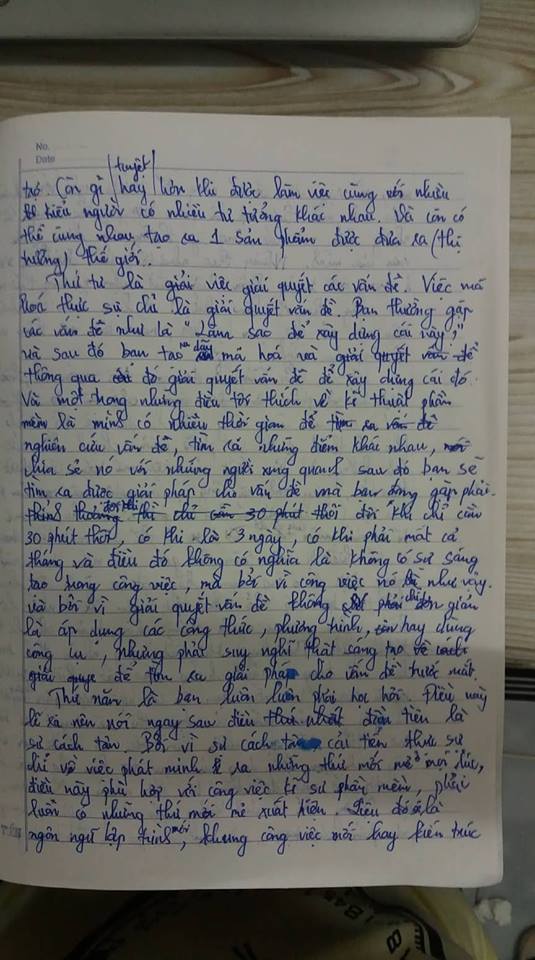 No.
Date
tuyệt
trở. Còn gì hay hơn khi được làm việc cùng với nhiều
kiểu người có nhiều tư tưởng khác nhau. Và còn có
thể cùng nhau tạo ra 1 sản phẩm được đưa ra (thị
trường) thế giới..
Thứ tư là giải việc giải quyết các vấn đề. Việc mã
hoá thực sự chỉ là giải quyết vấn đề. Bạn thường gặp
các vấn đề như là "Làm sao để xây dựng cái này",
và sau đó bạn tạo ra dãy mã hoá và giải quyết vấn đề
thông qua đó giải quyết vấn đề để xây dựng cái đó.
Và một trong những điều tôi thích về kĩ thuật phần
mềm là mình có nhiều thời gian để tìm ra vấn đề
nghiên cứu vấn đề, tìm ra những điểm khác nhau,
chia sẻ nó với những người xung quanh sau đó bạn sẽ
tìm ra được giải pháp cho vấn đề mà bạn đang gặp phải.
thỉnh thoảng thì chỉ cần 30 phút thôi đôi khi chỉ cần
30 phút thôi, có khi là 3 ngày, có khi phải mất cả
tháng và điều đó không có nghĩa là không có sự sáng
tạo trong công việc, mà bởi vì công việc nó là như vậy.
và bởi vì giải quyết vấn đề không phải chỉ đơn giản
là áp dụng các công thức, phương trình, hay dùng
công cụ, nhưng phải suy nghĩ thật sáng tạo về cách
giải quyết để tìm ra giải pháp cho vấn đề trước mắt.
Thứ năm là bạn luôn luôn phải học hỏi. Điều này
lẽ ra nên nói ngay sau điều thứ nhất đầu tiên là
sự cách tân. Bởi vì sự cách tân cải tiến thực sự
chỉ về việc phát minh ra những thứ mới mẻ mọi lúc,
điều này phù hợp với công việc kĩ sư phần mềm, phải
luôn có những thứ mới mẻ xuất hiện. Điều đó là
ngôn ngữ lập trình mới, khung công việc mới hay kiến trúc